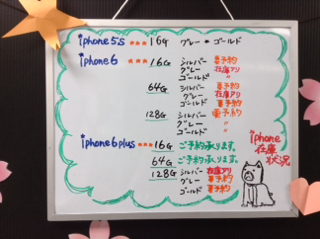 iphone5s *** 16G グレー * ゴールド
iphone6 *** 16G シルバー 要予約
グレー 在庫アリ
ゴールド 〃
64G シルバー 要予約
グレー 在庫アリ
ゴールド 要予約
128G シルバー 要予約
グレー 〃
ゴールド 〃
iphone6plus *** 16G ご予約承ります。
64G ご予約承ります。
128G シルバー 在庫アリ
グレー 要予約
ゴールド 要予約
iphone
在庫
状況